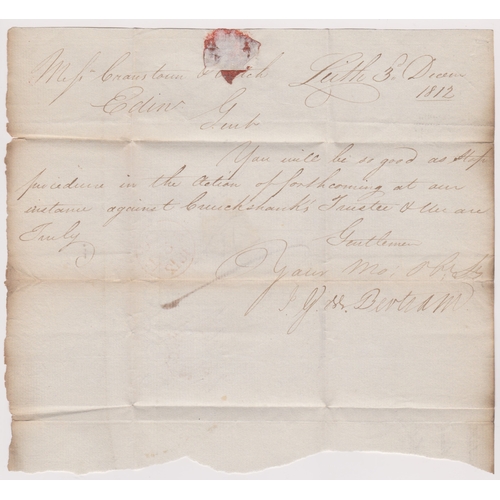 Messrs Cranstoun & Leith 3 Decemr
Edinr 1812
Gent
You will be so good as stop
procedure in the Action of forthcoming at our
instance against Cruickshank's Trustee & We are
Truly
Gentlemen
Yours Mo: Obt
Bertram